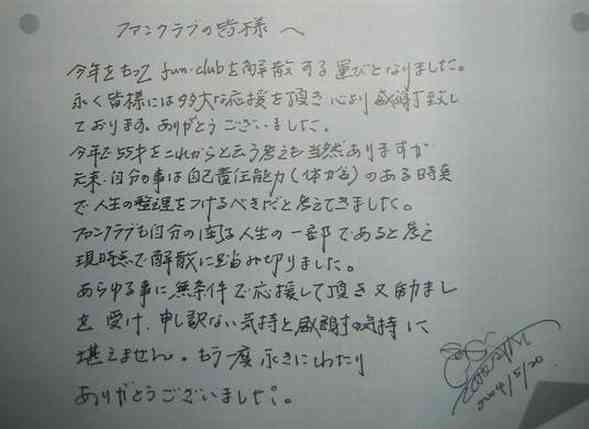 ファンクラブの皆様へ
今年をもって fun-clubを解散する運びとなりました。
永く皆様には多大な応援を頂き心より感謝致し
ております。ありがとうございました。
今年で55才をこれからと云う考えも当然ありますが
元来、自分の事は自己責任能力(体力含)のある時点
で人生の整理をつけるべきだと考えてきました。
ファンクラブも自分の 人生の一部であると考え
現時点で解散に踏み切りました。
あらゆる事に無条件で応援して頂き又励まし
を受け、申し訳ない気持と感謝の気持に
堪えません。もう一度永きにわたり
ありがとうございました。
2004/5/20